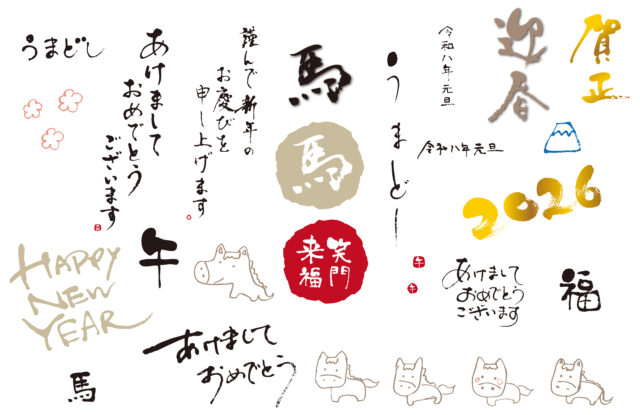 うまどし
あけまして
おめでとう
ございます
謹んで新年の
お慶びを
申し上げます
馬
うまどし
令和八年元旦
迎春
賀正
馬
令和八年元旦
2026
HAPPY
NEW
YEAR
午
笑門
来福
午
午
あけまして
おめでとう
ございます
福
馬
あけまして
おめでとう